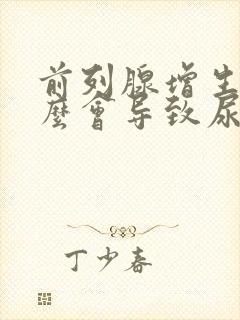 前列腺增生
麼會导致尿
丁少春